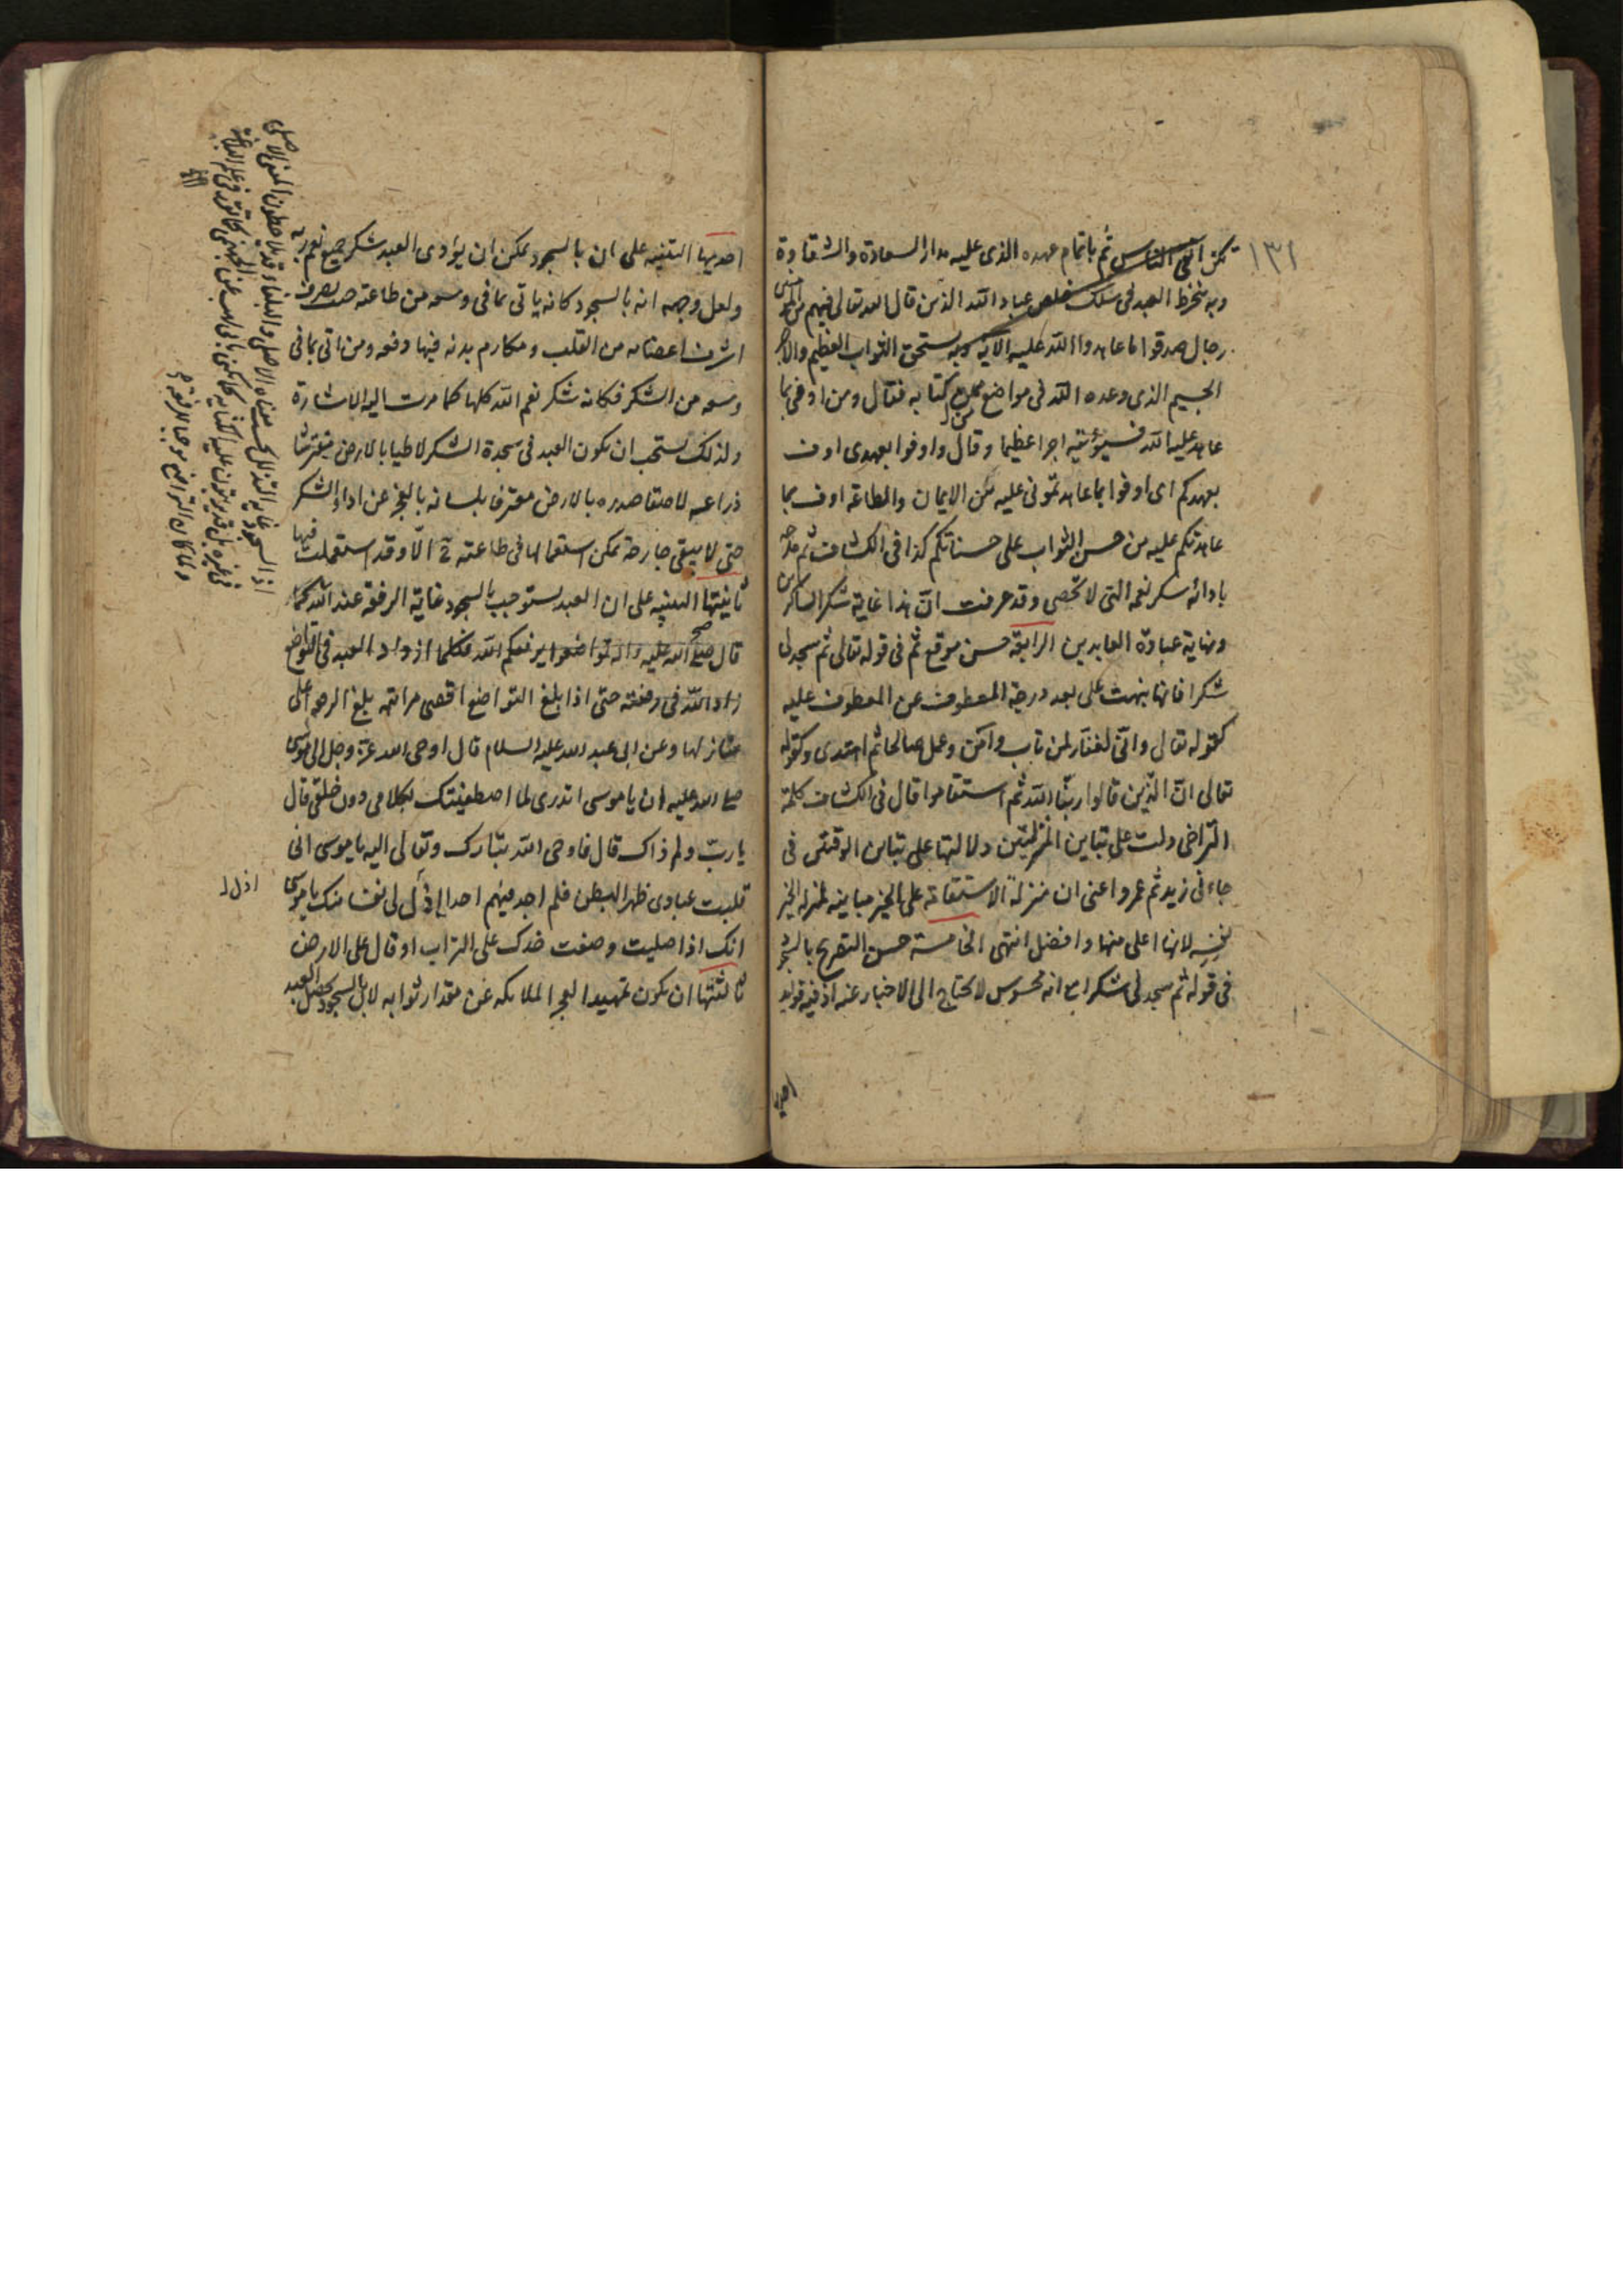 ١٣١
تكن اتقى الناس ثم باتمام عهده الذى عليه مدار السعادة والشقاوة
وبه ينخرط العبد فى سلك خلص عباد الله الذين قال الله تعالى فيهم من المؤمنين
رجال صدقوا ما عاهدوا الله عليه الاية وبه يستحق الثواب العظيم والاجر
الجسيم الذى وعده الله فى مواضع من كتابه فقال ومن اوفى بما
عاهد عليه الله فسيؤتيه اجرا عظيما وقال واوفوا بعهدى اوف
بعهدكم اى اوفوا بما عاهدتمونى عليه من الايمان والطاعة اوف بما
عاهدتكم عليه من حسن الثواب على حسناتكم كذا فى الكشاف ثم مدحه
بادائه شكر نعمه التى لا تحصى وقد عرفت ان هذا غاية شكر الشاكرين
ونهاية عبادة العابدين الرابعة حسن موقع ثم فى قوله تعالى ثم سجد لى
شكرا فانها نبهت على بعد درجة المعطوف عن المعطوف عليه
كقوله تعالى وانى لغفار لمن تاب وآمن وعمل صالحا ثم اهتدى وكقوله
تعالى ان الذين قالوا ربنا الله ثم استقاموا قال فى الكشاف كلمة
التراخى دلت على تباين المنزلتين دلالتها على تباين الوقتين فى
جاءنى زيد ثم عمرو اعنى ان منزلة الاستقامة على الخير مباينة لمنزلة الخير
نفسه لانها اعلى منها وافضل انتهى الخامسة حسن التصريح بالسجود
فى قوله ثم سجد لى شكرا مع انه محسوس لا يحتاج الى الاخبار عنه اذ فيه فوائد
احديها
احديها التنبيه على ان بالسجود يمكن ان يؤدى العبد شكر جميع نعم ربه
ولعل وجهه انه بالسجود كانه ياتى بما فى وسعه من طاعته حيث يصرف
اشرف اعضائه من القلب ومكارم بدنه فيها دفعه ومن اتى بما فى
وسعه من الشكر فكانه شكر نعم الله كلها كما مرت اليه الاشارة
ولذلك يستحب ان يكون العبد فى سجدة الشكر لاطيا بالارض مفترشا
ذراعيه لاصقا صدره بالارض معترفا بلسانه بالعجز عن اداء الشكر
حتى لا يبقى جارحة يمكن استعمالها فى طاعته تع الا وقد استعملت فيها
ثانيتها التنبيه على ان العبد يستوجب بالسجود غاية الرفعة عند الله كما
قال صلى الله عليه واله تواضعوا يرفعكم الله فكلما ازداد العبد فى التواضع
زاد الله فى رفعته حتى اذا بلغ التواضع اقصى مراتبه بلغ الرفعة اعلى
منازلها وعن ابى عبد الله عليه السلام قال اوحى الله عز وجل الى موسى
صلى الله عليه ان يا موسى اتدرى لما اصطفيتك بكلامى دون خلقى قال
يا رب ولم ذاك قال فاوحى الله تبارك وتعالى اليه يا موسى انى
قلبت عبادى ظهرا لبطن فلم اجد فيهم احدا اذل لى نفسا منك يا موسى
انك اذا صليت وضعت خدك على التراب او قال على الارض
ثالثتها ان يكون تمهيدا لعجز الملائكة عن مقدار ثوابه لان بالسجود يحصل للعبد
اذل لـ
اذ السجود غاية التذلل بحسب معناه الاصلى والبلغاء قد يلاحظون المعنى الاصلى